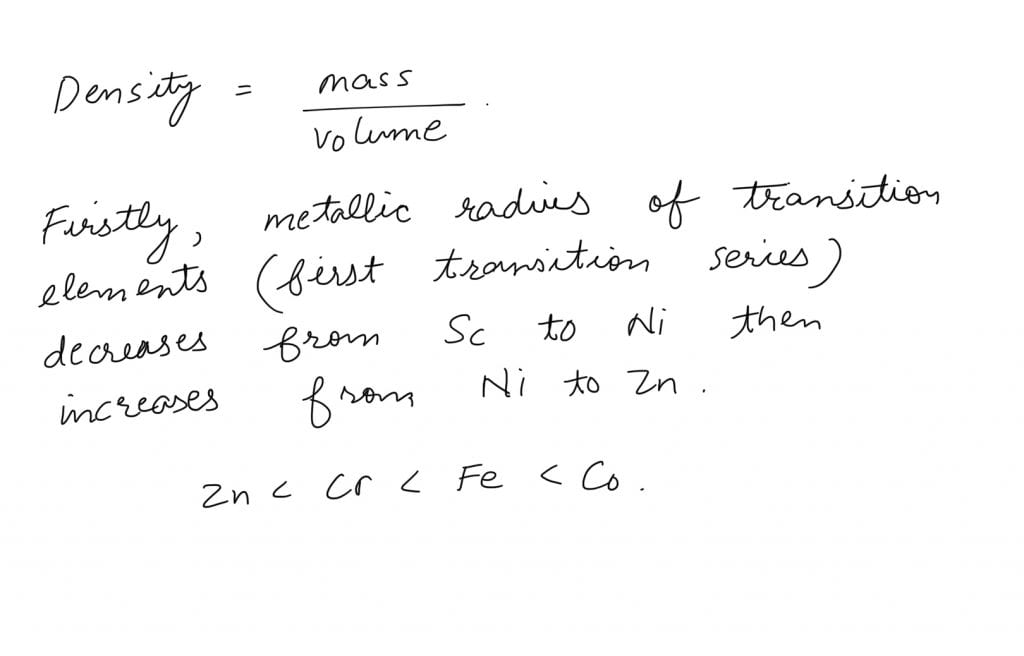 Density = mass / volume.
Firstly, metallic radius of transition
elements (first transition series)
decreases from Sc to Ni then
increases from Ni to Zn.
Zn < Cr < Fe < Co.